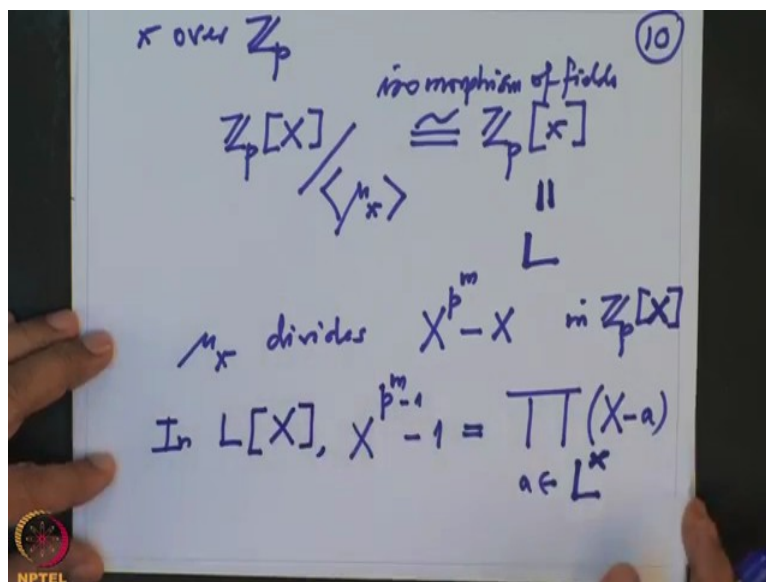 x over ℤ_p
(10)
isomorphism of fields
ℤ_p[X] / ⟨μ_x⟩ ≅ ℤ_p[x]
||
L
μ_x divides X^{p^m} - X in ℤ_p[X]
In L[X], X^{p^m-1} - 1 = ∏ (X-a)
a ∈ L^x
NPTEL